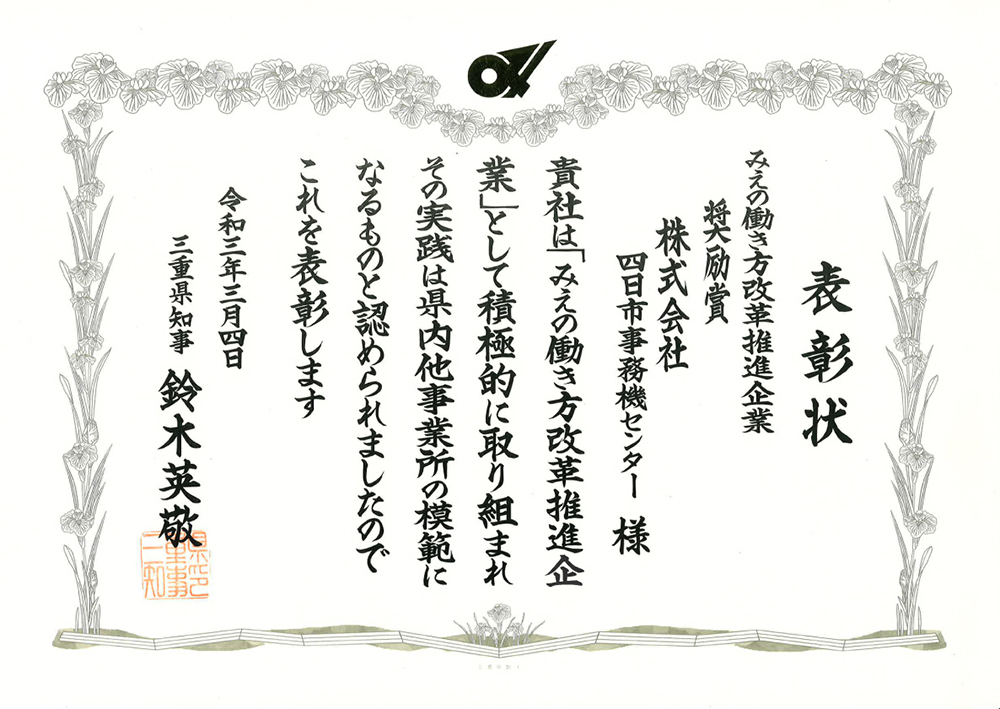 表彰状
みえの働き方改革推進企業
奨励賞
株式会社
四日市事務機センター 様
貴社は「みえの働き方改革推進企
業」として積極的に取り組まれ
その実践は県内他事業所の模範に
なるものと認められましたので
これを表彰します
令和三年三月四日
三重県知事 鈴木英敬